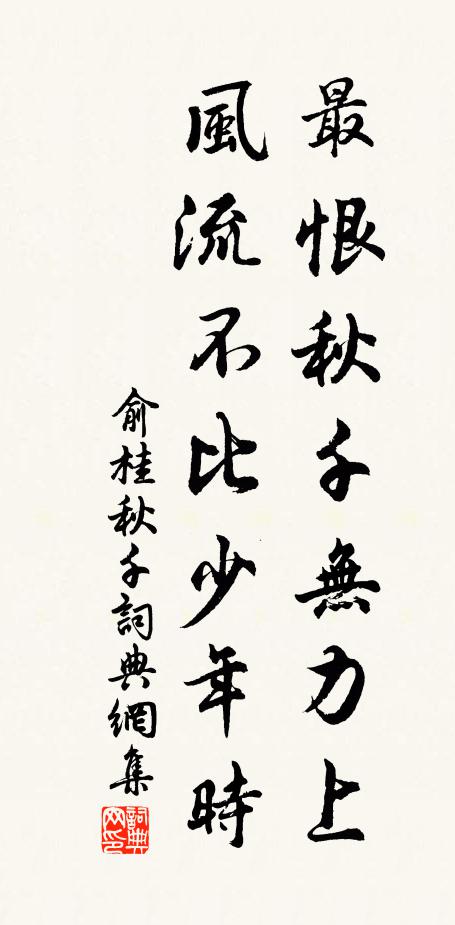 最恨秋千無力上
風流不比少年時
俞桂秋千詞典網集
詞典网印